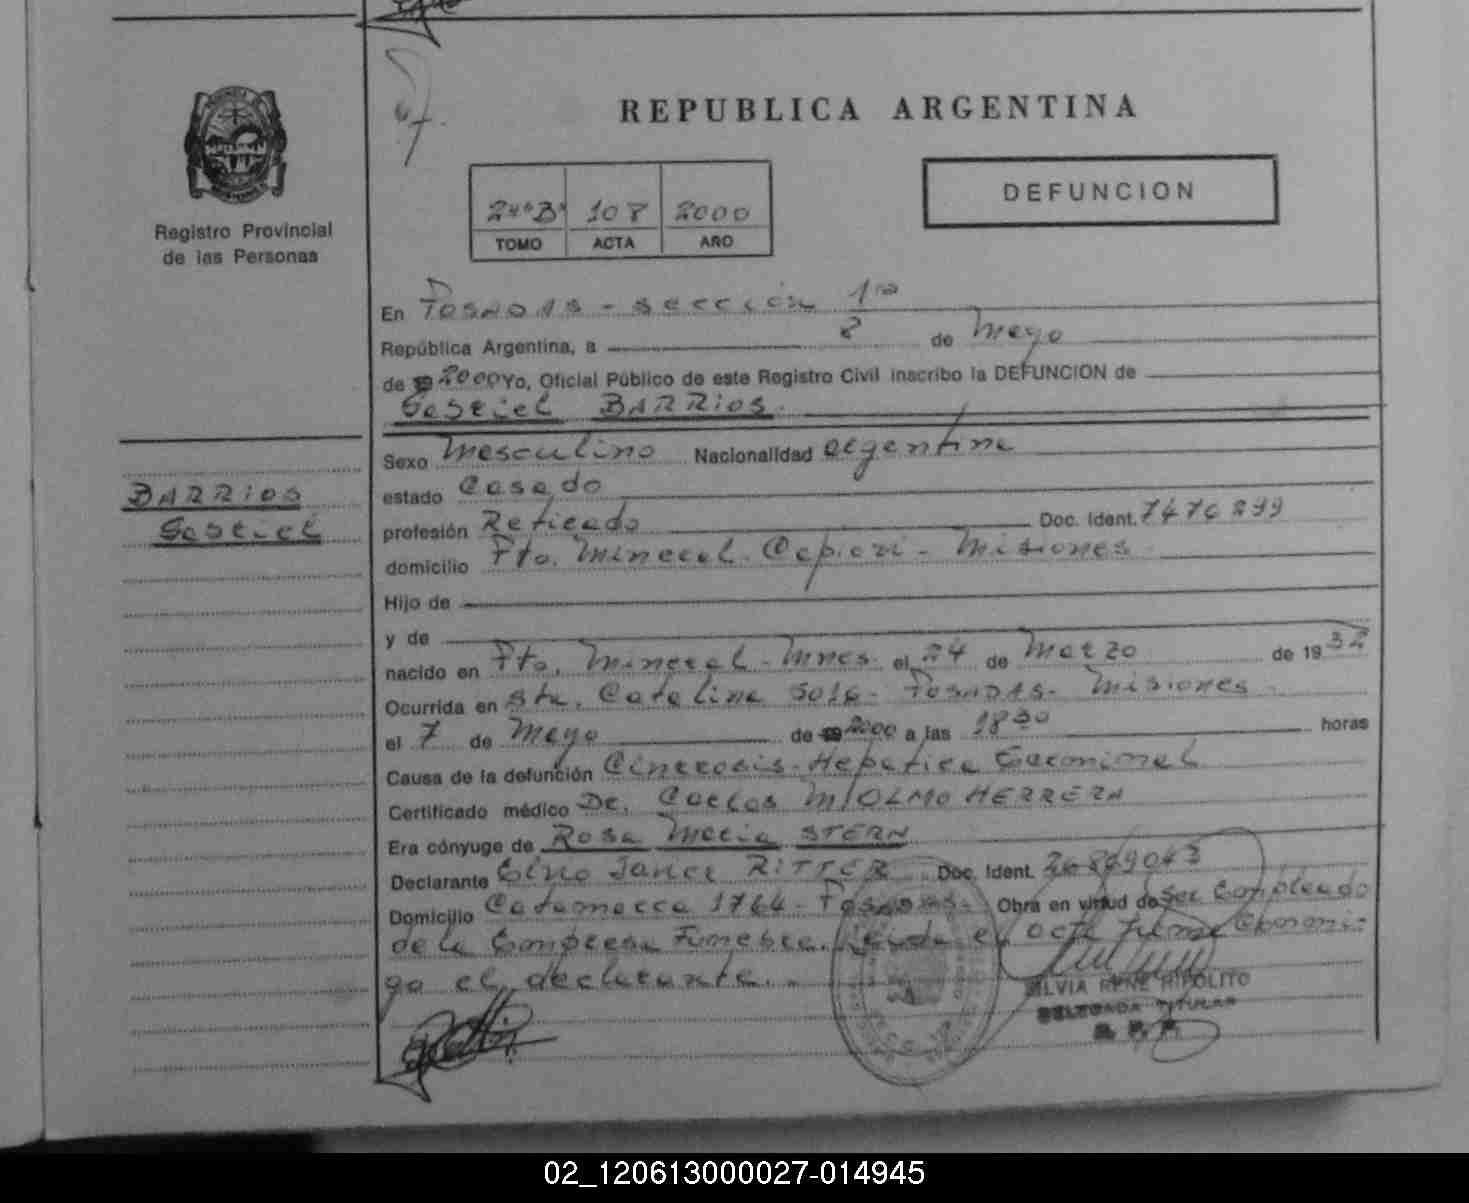 REPUBLICA ARGENTINA
Registro Provincial
de las Personas
24°B° 108 2000
TOMO ACTA AÑO
DEFUNCION
En Posadas - sección 1ra
República Argentina, a 8 de Mayo
de 2000 Yo, Oficial Público de este Registro Civil inscribo la DEFUNCION de
Gabriel BARRIOS.
BARRIOS
Gabriel
Sexo Masculino Nacionalidad argentina
estado Casado
profesión Retirado Doc. Ident. 7476299
domicilio Pto. Mineral. Capiovi - Misiones
Hijo de
y de
nacido en Pto. Mineral - Mnes. el 24 de Marzo de 1932
Ocurrida en Sta. Catalina - POSADAS - Misiones
el 7 de Mayo de 2000 a las 18 30 horas
Causa de la defunción Hepatica
Certificado médico Dr. Carlos HERRERA
Era cónyuge de Rosa Maria STERN
Declarante RITTER Doc. Ident. 26849043
Domicilio Catamarca 1764 - Posadas - Obra en virtud de Ser Empleado
de la Empresa Funebre. Leida el acta firma
go el declarante.
SILVIA RENE HIPOLITO
DELEGADA TITULAR
02_120613000027-014945